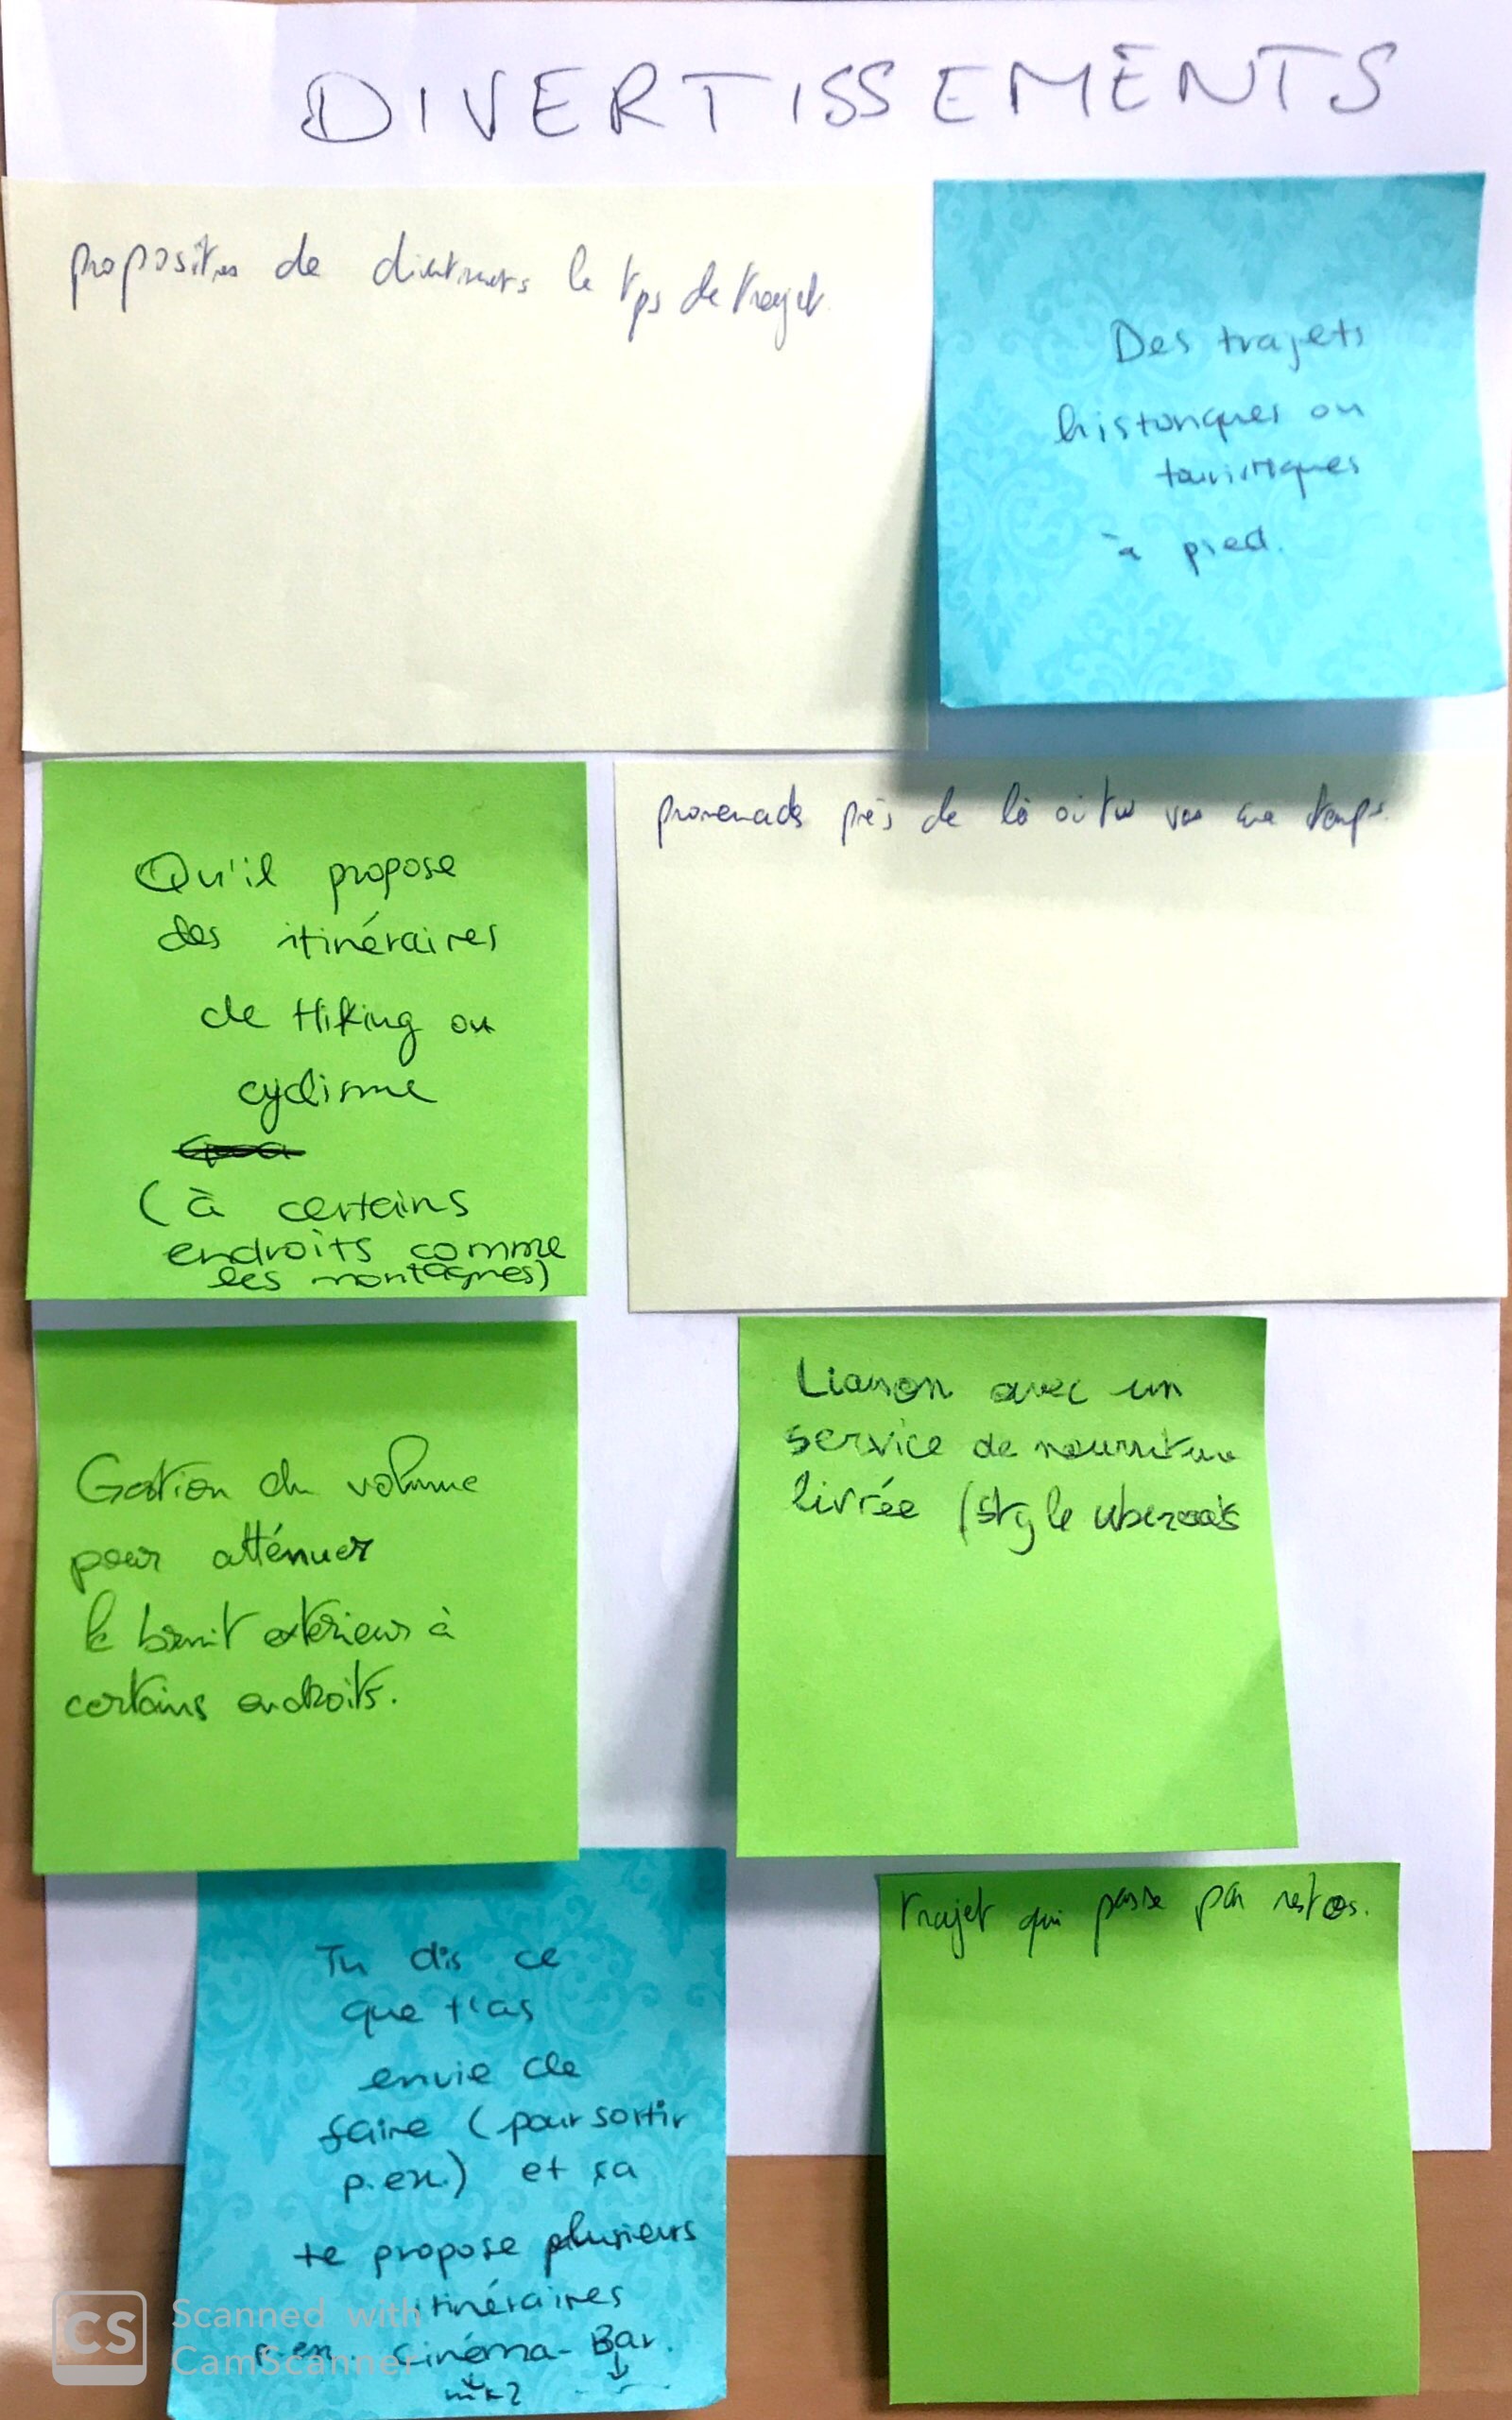 DIVERTISSEMENTS
propositns de le tps de trajet.
Des trajets
historiques ou
touristiques
à pied.
Qu'il propose
des itinéraires
de Hiking ou
cyclisme
(à certains
endroits comme
les montagnes)
promenads près de là où tu temps.
Gestion du volume
pour atténuer
le bruit extérieur à
certains endroits.
Liaison avec un
service de nourriture
livrée (style ubereats
Tu dis ce
que t'as
envie de
faire (pour sortir
p.ex.) et ça
te propose plusieurs
itinéraires
p.ex. Cinéma-Bar.
mk2
trajet qui passe par restos.
CS Scanned with
CamScanner